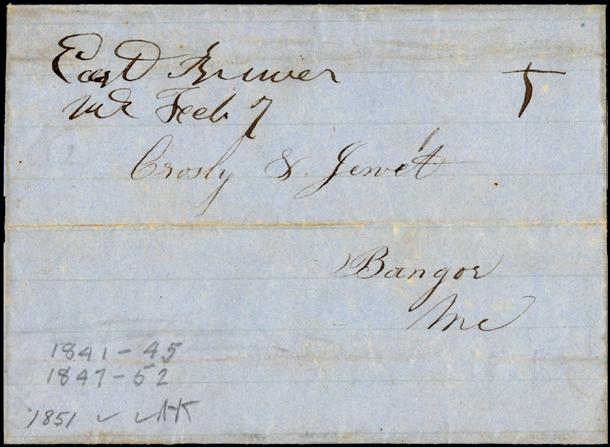 East Brewer
Me Feb 7
5
Crosby & Jewet
Bangor
Me
1841-45
1847-52
1851